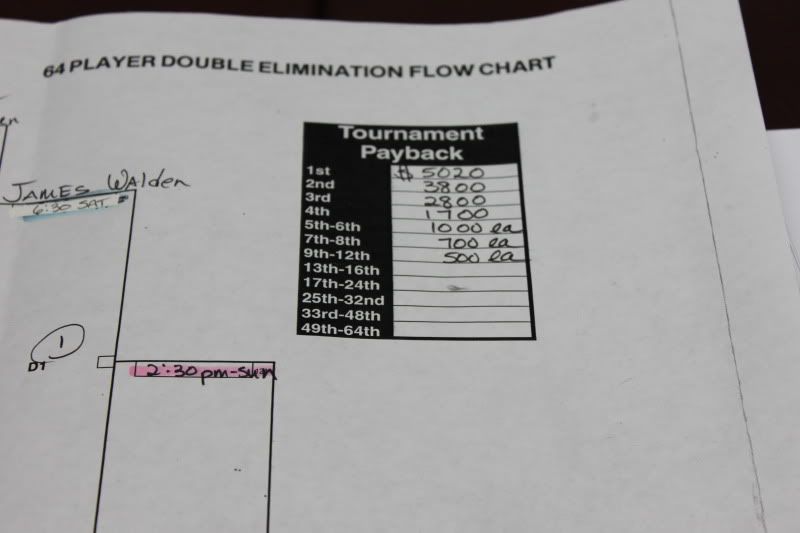 64 PLAYER DOUBLE ELIMINATION FLOW CHART
Tournament
Payback
1st $ 5020
2nd 3800
3rd 2800
4th 1700
5th-6th 1000 ea
7th-8th 700 ea
9th-12th 500 ea
13th-16th
17th-24th
25th-32nd
33rd-48th
49th-64th
JAMES Walden
6:30 SAT.
1
D1
2:30pm-Sun